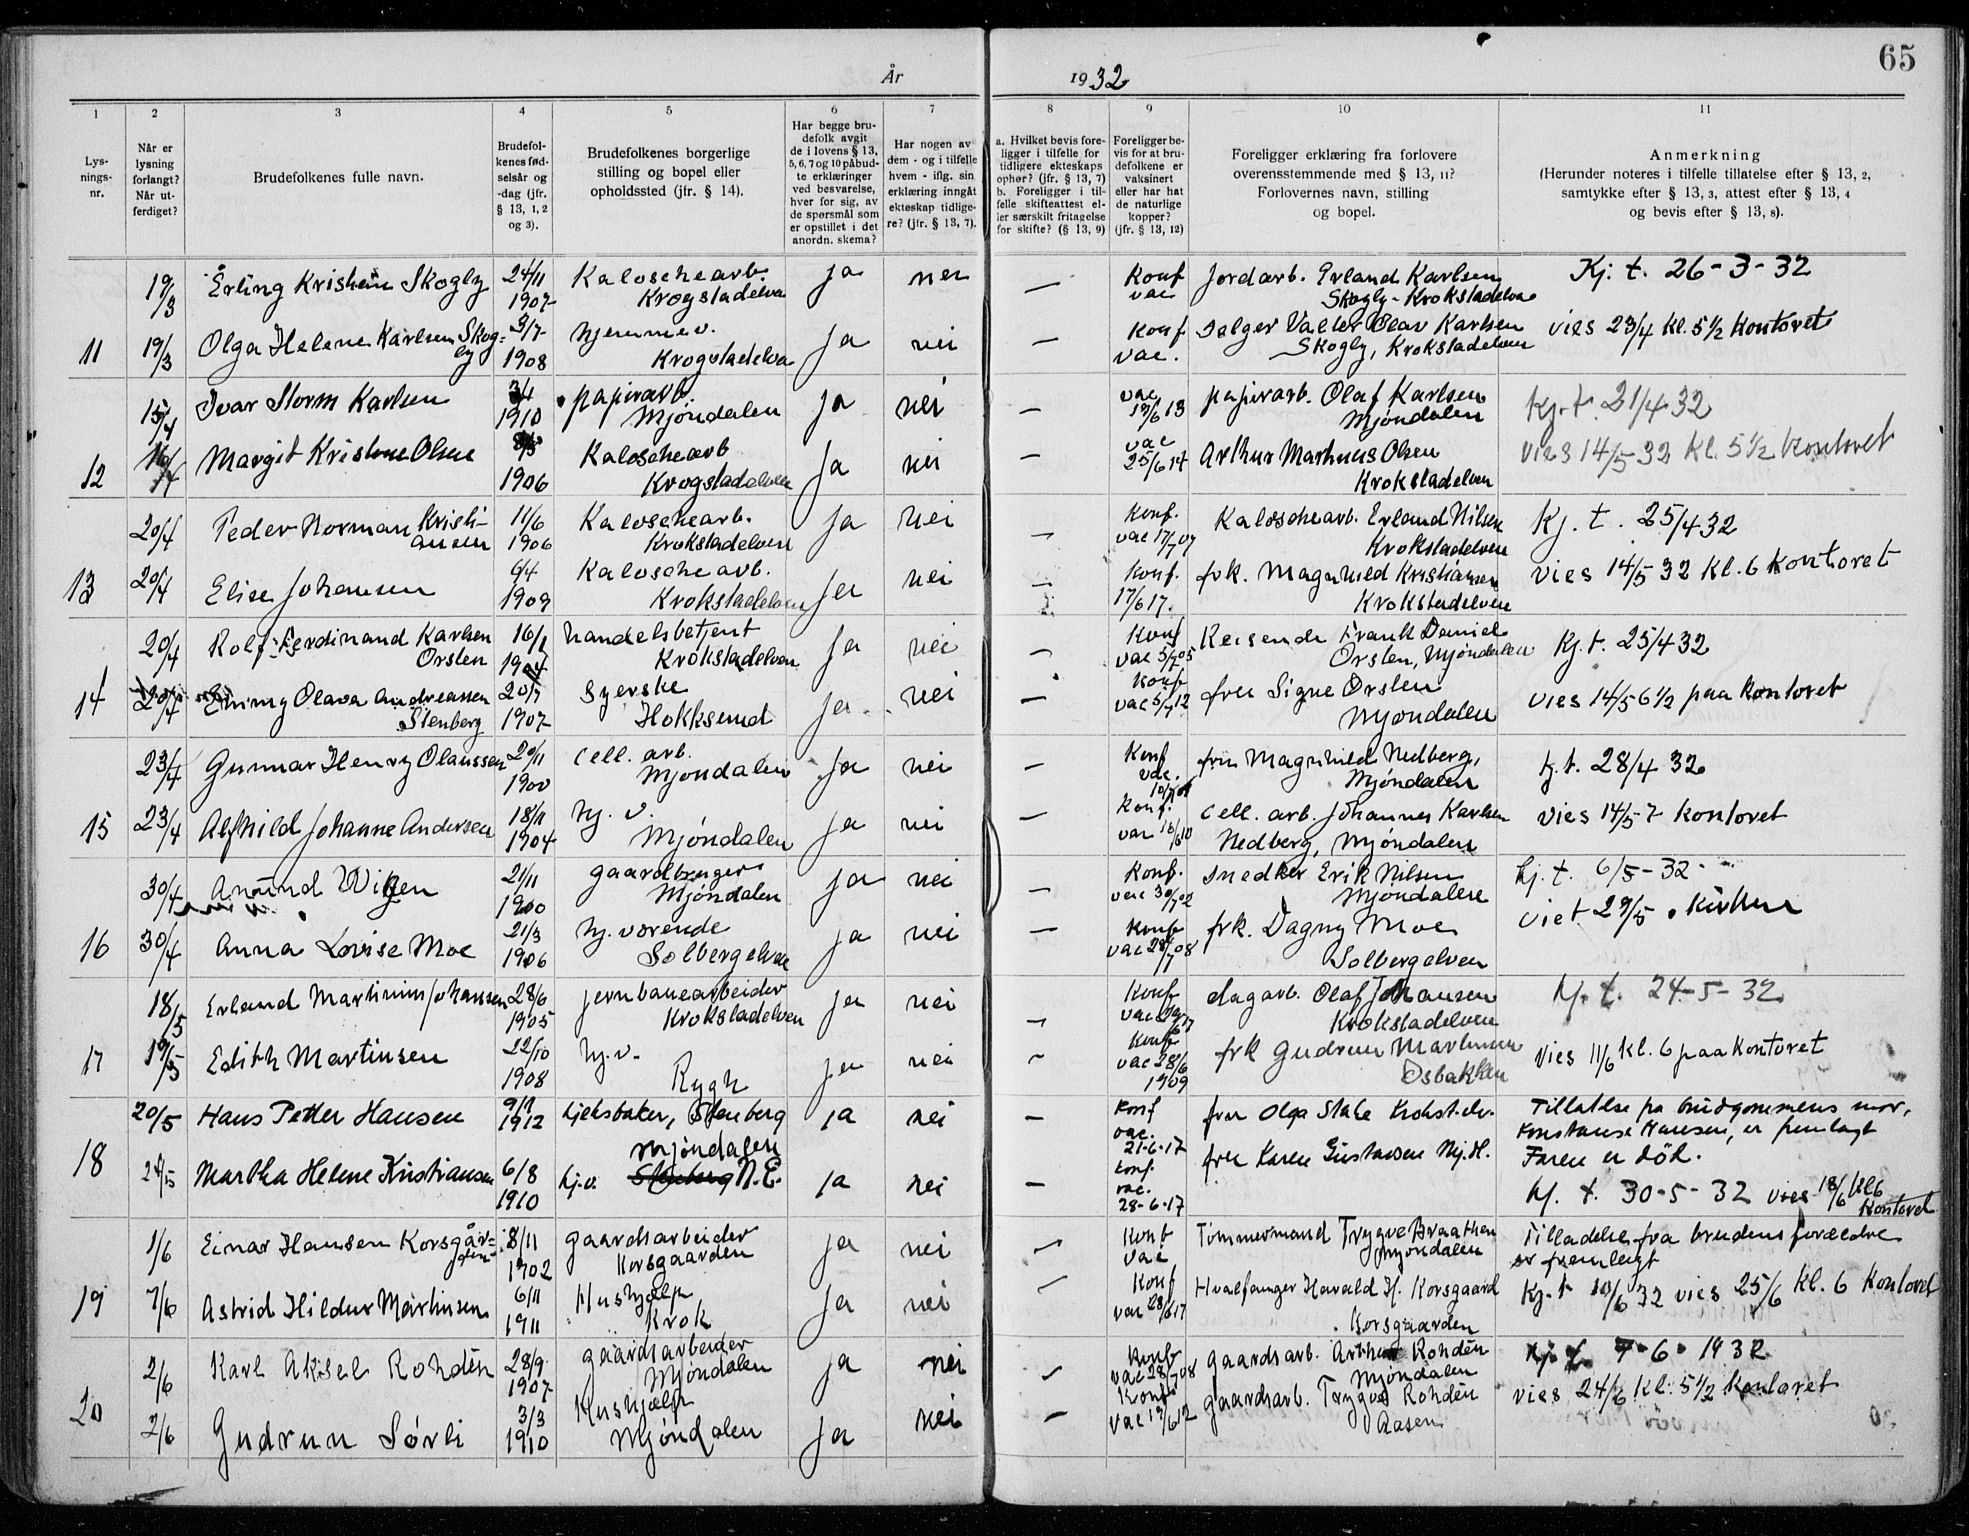 65
År 1932
1
2
3
4
5
6
7
8
9
10
11
Lys-
nings-
nr.
Når er
lysning
forlangt?
Når ut-
ferdiget?
Brudefolkenes fulle navn.
Brudefol-
kenes fød-
selsår og
-dag (jfr.
§ 13, 1, 2
og 3).
Brudefolkenes borgerlige
stilling og bopel eller
opholdssted (jfr. § 14).
Har begge bru-
defolk avgit
de i lovens § 13,
5, 6, 7 og 10 påbud-
te erklæringer
ved besvarelse,
hver for sig, av
de spørsmål som
er opstillet i det
anordn. skema?
Har nogen av
dem - og i tilfelle
hvem - iflg. sin
erklæring inngått
ekteskap tidlige-
re? (jfr. § 13, 7).
a. Hvilket bevis fore-
ligger i tilfelle for
tidligere ekteskaps
ophør? (jfr. § 13, 7)
b. Foreligger i til-
felle skifteattest el-
ler særskilt fritagelse
for skifte? (§ 13, 9)
Foreligger be-
vis for at bru-
defolkene er
vaksinert
eller har hat
de naturlige
kopper?
(jfr. § 13, 12)
Foreligger erklæring fra forlovere
overensstemmende med § 13, 11?
Forlovernes navn, stilling
og bopel.
Anmerkning
(Herunder noteres i tilfelle tillatelse efter § 13, 2,
samtykke efter § 13, 3, attest efter § 13, 4
og bevis efter § 13, 8).
19/3 Erling Kristian Skogly 24/11 1907 Kaloschearb. Krogstadelva ja nei — Konf vac Jordarb. Erland Karlsen Skogly - Krokstadelva Kj. t. 26-3-32
11 19/3 Olga Helene Karlsen Skogly 3/7 1908 hjemmev. Krogstadelva ja nei — Konf vac. Valter Olav Karlsen Skogly, Krokstadelven vies 23/4 kl. 5 1/2 kontoret
15/4 Ivar Storm Karlsen 3/4 1910 papirarb. Mjøndalen ja nei — vac 19/6 13 papirarb. Olaf Karlsen Mjøndalen Kj. t. 21/4 32
12 Margit Kristine Olsen 1906 Kaloschearb Krogstadelven ja nei — vac 25/6 14 Arthur Martinius Olsen Krokstadelven vies 14/5 32 kl. 5 1/2 kontoret
20/4 Peder Norman Kristiansen 11/6 1906 Kaloschearb. Krokstadelven ja nei — Konf. vac 17/7 07 Kaloschearb. Erland Nilsen Krokstadelven Kj. t. 25/4 32
13 20/4 Elise Johansen 6/4 1909 Kaloschearb. Krokstadelven ja nei — Konf. 17/6 17. frk. Magnhild Kristiansen Krokstadelven vies 14/5 32 kl. 6 kontoret
20/4 Rolf Ferdinand Karlsen Orsten 16/1 1904 handelsbetjent Krokstadelven ja nei — Konf vac 5/7 05 Reisende Frank Daniel Orsten, Mjøndalen Kj. t. 25/4 32
14 20/4 Emmy Olava Andreassen Stenberg 20/7 1907 Syerske Hokksund ja nei — Konf vac 5/7 12 fru Signe Orsten Mjøndalen vies 14/5 6 1/2 paa kontoret
23/4 Gunnar Henry Olaussen 20/11 1900 cell. arb. Mjøndalen ja nei — Konf vac. fru Magnhild Nedberg, Mjøndalen Kj. t. 28/4 32
15 23/4 Alfhild Johanne Andersen 18/11 1904 hj. v. Mjøndalen ja nei — Konf. vac 16/6 10 cell. arb. Johannes Karlsen Nedberg, Mjøndalen vies 14/5 7 kontoret
30/4 Anund Wigen 21/11 1900 gaardbruger Mjøndalen ja nei — Konf. vac 30/7 02 snedker Erik Nilsen Mjøndalen Kj. t. 6/5-32
16 30/4 Anna Lovise Moe 21/3 1906 hj. værende Solbergelven ja nei — Konf vac 28/7 08 frk. Dagny Moe Solbergelven viet 29/5 . kirken
18/5 Erland Martinius Johansen 28/6 1905 jernbanearbeider Krokstadelven ja nei — Konf vac dagarb. Olaf Johansen Krokstadelven Kj. t. 24-5-32
17 19/5 Edith Martinsen 22/10 1908 hj. v. Rygh ja nei — Konf vac 28/6 1909 frk Gudrun Martinsen Osbakken vies 11/6 kl. 6 paa kontoret
20/5 Hans Petter Hansen 9/9 1912 kjeksbaker, Stenberg Mjøndalen ja nei — Konf vac. 21-6-17 fru Olga Stabe Krokst.elv. Tillatelse fra brudgommens mor, Konstanse Hansen, er fremlagt
18 Martha Helene Kristiansen 6/8 1910 hj.v. Stenberg N.E. ja nei — konf. vac. 28-6-17 fru Karen Gustavsen Nj. H. Faren er død.
Kj. t. 30-5-32 vies 18/6 kl 6 kontoret
1/6 Einar Hansen Korsgården 8/11 1902 gaardsarbeider Korsgaarden ja nei — Konf vac Tømmermand Trygve Braathen Mjøndalen Tilladelse fra brudens forældre er fremlagt
19 7/6 Astrid Hildur Martinsen 6/11 1911 Hushjælp Krok ja nei — Konf vac 28/6 17 Hvalfanger Harald H. Korsgaard Korsgaarden Kj. t 10/6 32 vies 25/6 kl. 6 kontoret
2/6 Karl Aksel Rohdén 28/9 1907 gaardsarbeider Mjøndalen ja nei — Konf vac 28/7 08 gaardsarb. Arthur Rohdén Mjøndalen Kj. t. 7-6-1932
20 2/6 Gudrun Sørli 3/3 1910 Hushjælp Mjøndalen ja nei — Konf vac 19/6 12 gaardsarb. Trygve Rohdén Aasen vies 24/6 kl. 5 1/2 kontoret